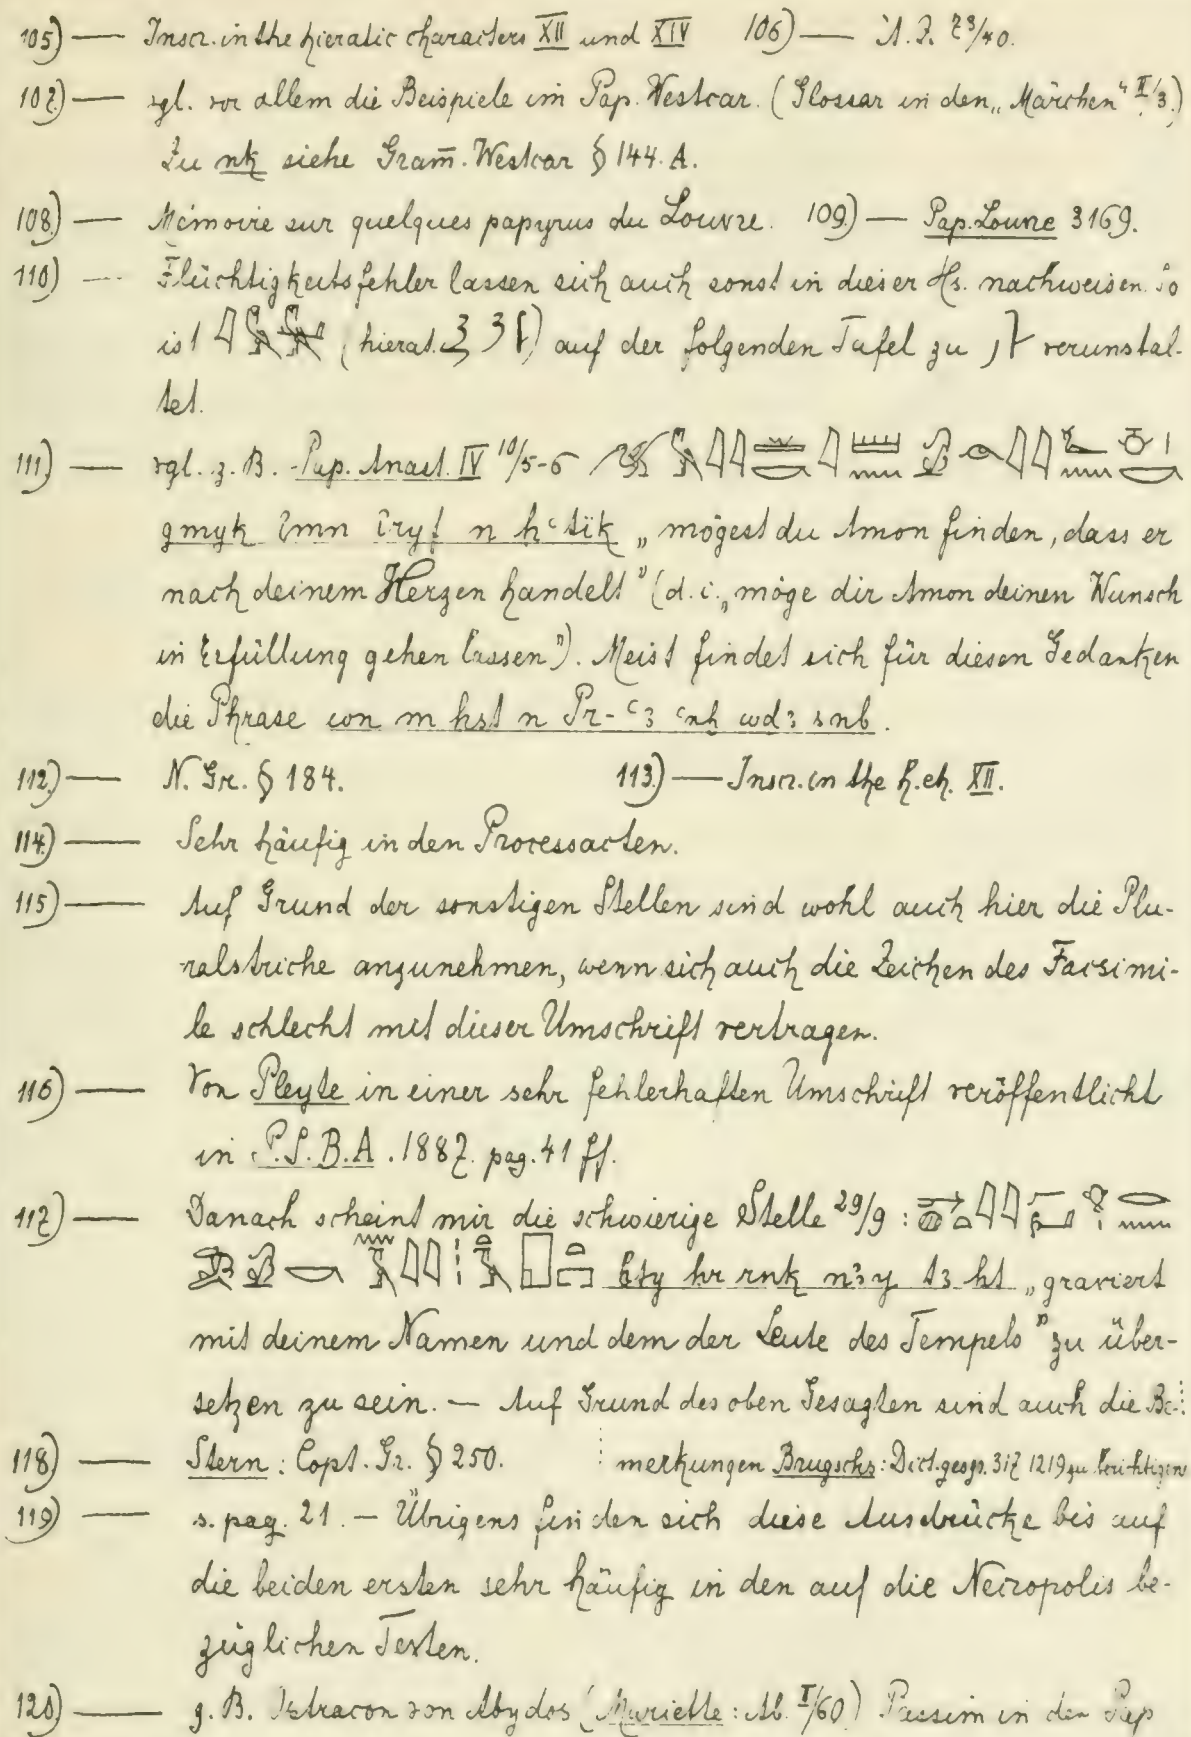 105) — Inscr. in the hieratic characters XII und XIV 106) — Ä.Z. 73/40.
107) — vgl. vor allem die Beispiele im Pap. Westcar. (Glossar in den „Märchen" II/3.)
Zu nk siehe Gram̄. Westcar § 144. A.
108) — Mémoire sur quelques papyrus du Louvre. 109) — Pap. Louvre 3169.
110) — Flüchtigkeitsfehler lassen sich auch sonst in dieser Hs. nachweisen. So
ist (hierat. ) auf der folgenden Tafel zu verunstal-
tet.
111) — vgl. z. B. Pap. Anast. IV 10/5-6
gmyk imn iryf n ḥꜥtik „mögest du Amon finden, dass er
nach deinem Herzen handelt" (d. i. „möge dir Amon deinen Wunsch
in Erfüllung gehen lassen"). Meist findet sich für diesen Gedanken
die Phrase wn m ḥst n Pr-ꜥꜣ ꜥnḫ wdꜣ snb.
112) — N. Gr. § 184. 113) — Inscr. in the h. ch. XII.
114) — Sehr häufig in den Processacten.
115) — Auf Grund der sonstigen Stellen sind wohl auch hier die Plu-
ralstriche anzunehmen, wenn sich auch die Zeichen des Facsimi-
le schlecht mit dieser Umschrift vertragen.
116) — Von Pleyte in einer sehr fehlerhaften Umschrift veröffentlicht
in P.S.B.A. 1887. pag. 41 ff.
117) — Danach scheint mir die schwierige Stelle 29/9 :
ḫty ḥr rnk nꜣy tꜣ ḥt „graviert
mit deinem Namen und dem der Leute des Tempels" zu über-
setzen zu sein. — Auf Grund des oben Gesagten sind auch die Be-
118) — Stern : Copt. Gr. § 250. merkungen Brugschs : Dict. geogr. 317 1219 zu berichtigen
119) — s. pag. 21. — Übrigens finden sich diese Ausdrücke bis auf
die beiden ersten sehr häufig in den auf die Necropolis be-
züglichen Texten.
120) — z. B. Ostracon von Abydos (Mariette : Ab. I/60) Passim in den Pap